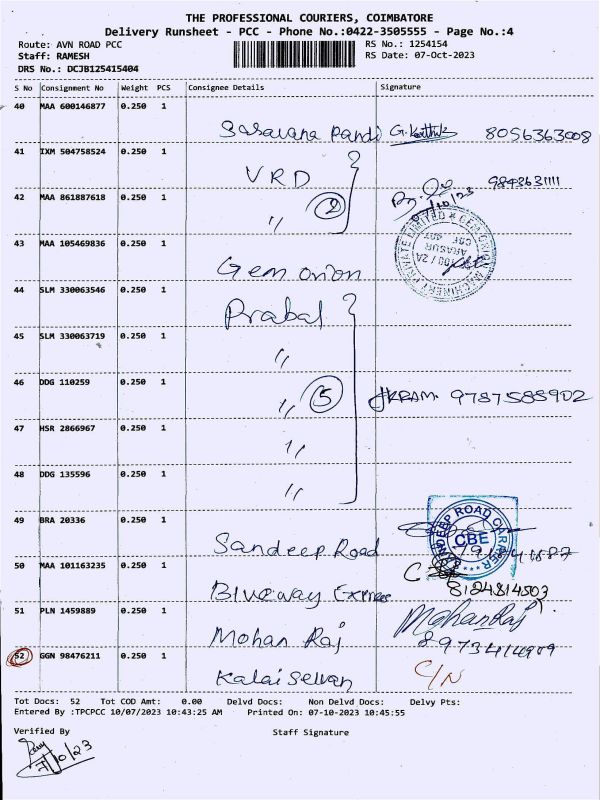 THE PROFESSIONAL COURIERS, COIMBATORE
Delivery Runsheet - PCC - Phone No.:0422-3505555 - Page No.:4
Route: AVN ROAD PCC RS No.: 1254154
Staff: RAMESH RS Date: 07-Oct-2023
DRS No.: DCJB125415404
S No Consignment No Weight PCS Consignee Details Signature
40 MAA 600146877 0.250 1
Saravana Pandi G. Karthik 8056363008
41 IXM 504758524 0.250 1
VRD 9843631111
42 MAA 861887618 0.250 1
〃 2
43 MAA 105469836 0.250 1
Gem onion
44 SLM 330063546 0.250 1
Prabal
45 SLM 330063719 0.250 1
〃
46 DDG 110259 0.250 1
〃 5 9787588902
47 HSR 2866967 0.250 1
〃
48 DDG 135596 0.250 1
〃
49 BRA 20336 0.250 1
Sandeep Road
SANDEEP ROAD CARRIER
CBE
50 MAA 101163235 0.250 1
Blueway Express 8124814503
51 PLN 1459889 0.250 1
Mohan Raj Mohan Raj
8973414909
52 GGN 98476211 0.250 1
Kalai Selvan C/N
Tot Docs: 52 Tot COD Amt: 0.00 Delvd Docs: Non Delvd Docs: Delvy Pts:
Entered By :TPCPCC 10/07/2023 10:43:25 AM Printed On: 07-10-2023 10:45:55
Verified By Staff Signature
7/10/23